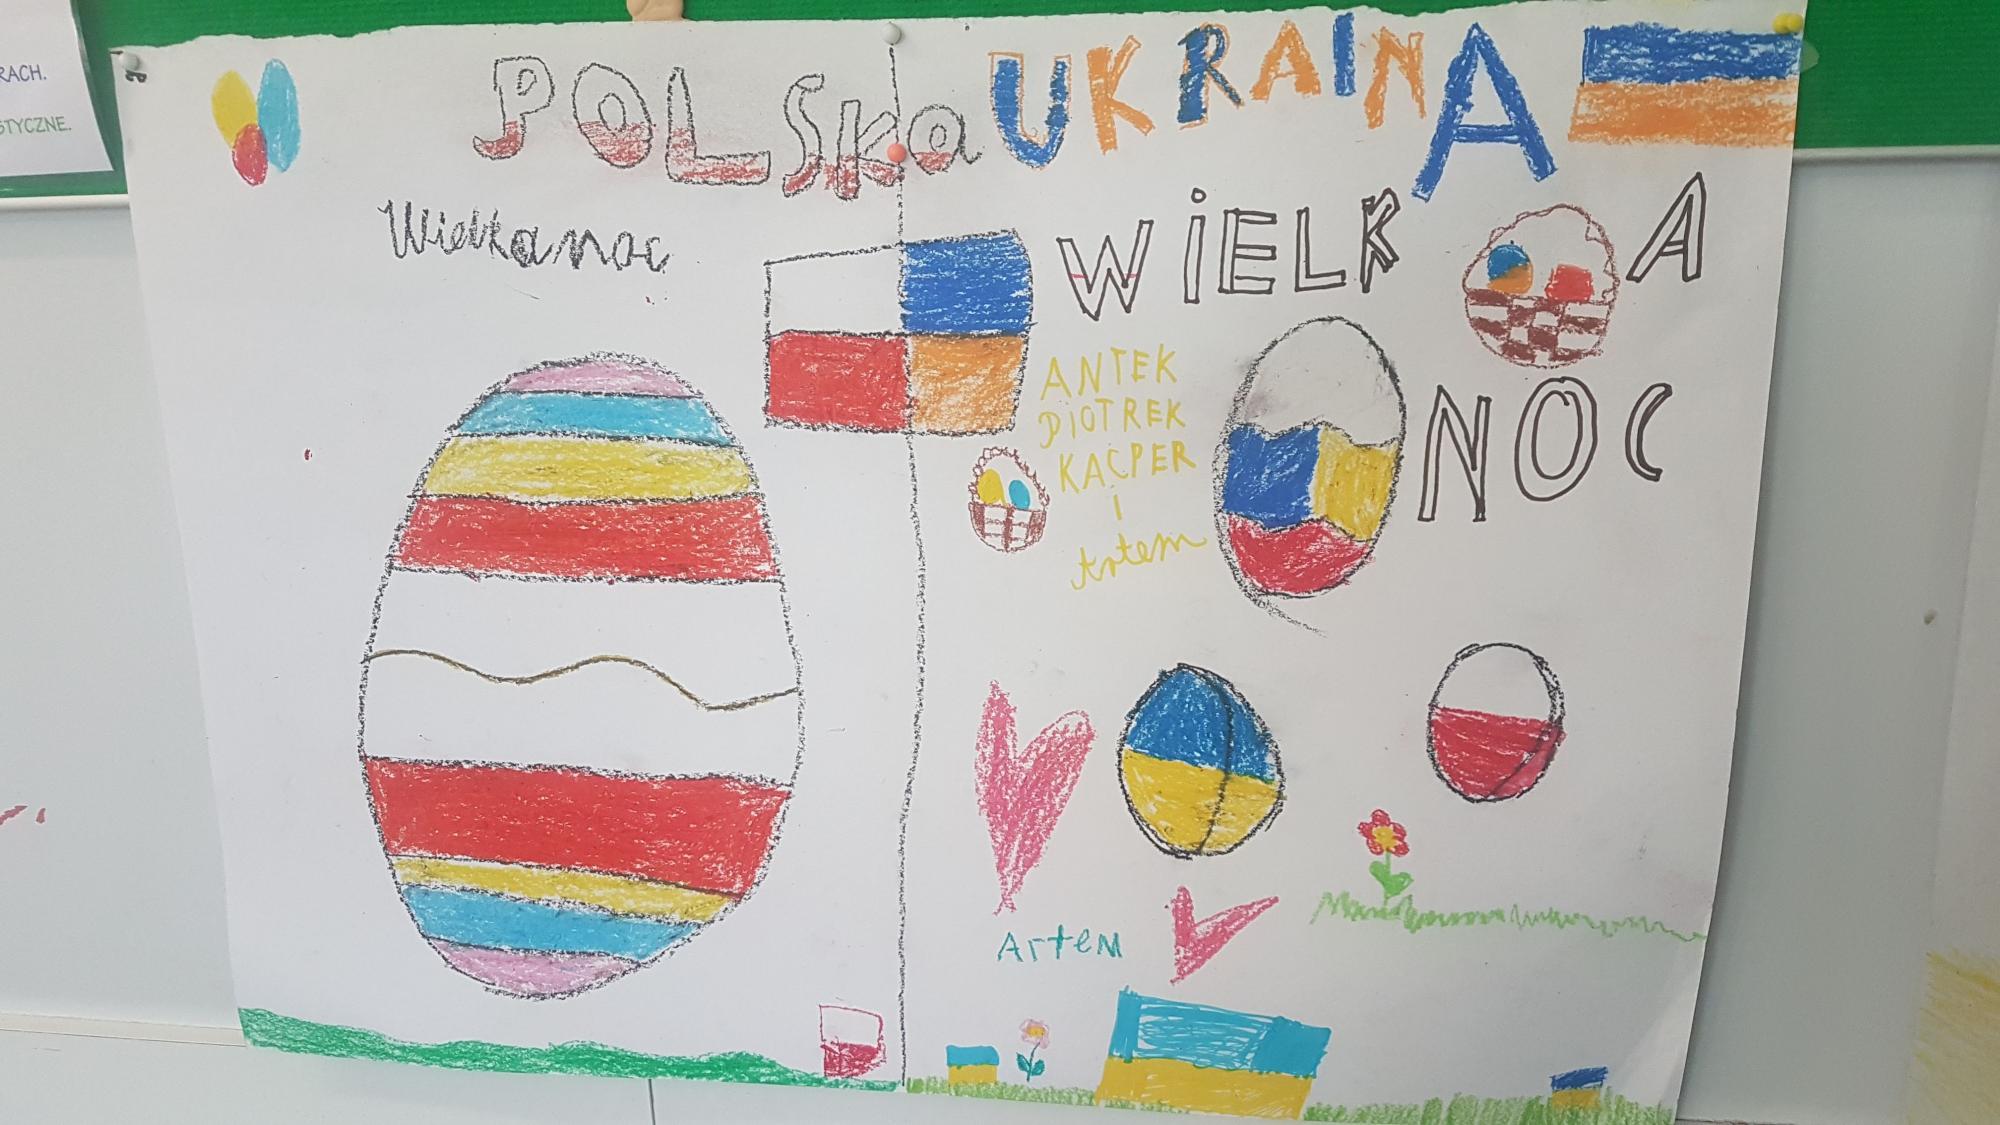 RACH.
STYCZNE.
POLSKa
Wielkanoc
UKRAINA
WiELK A
NOC
ANTEK
PIOTREK
KACPER
i
Artem
Artem